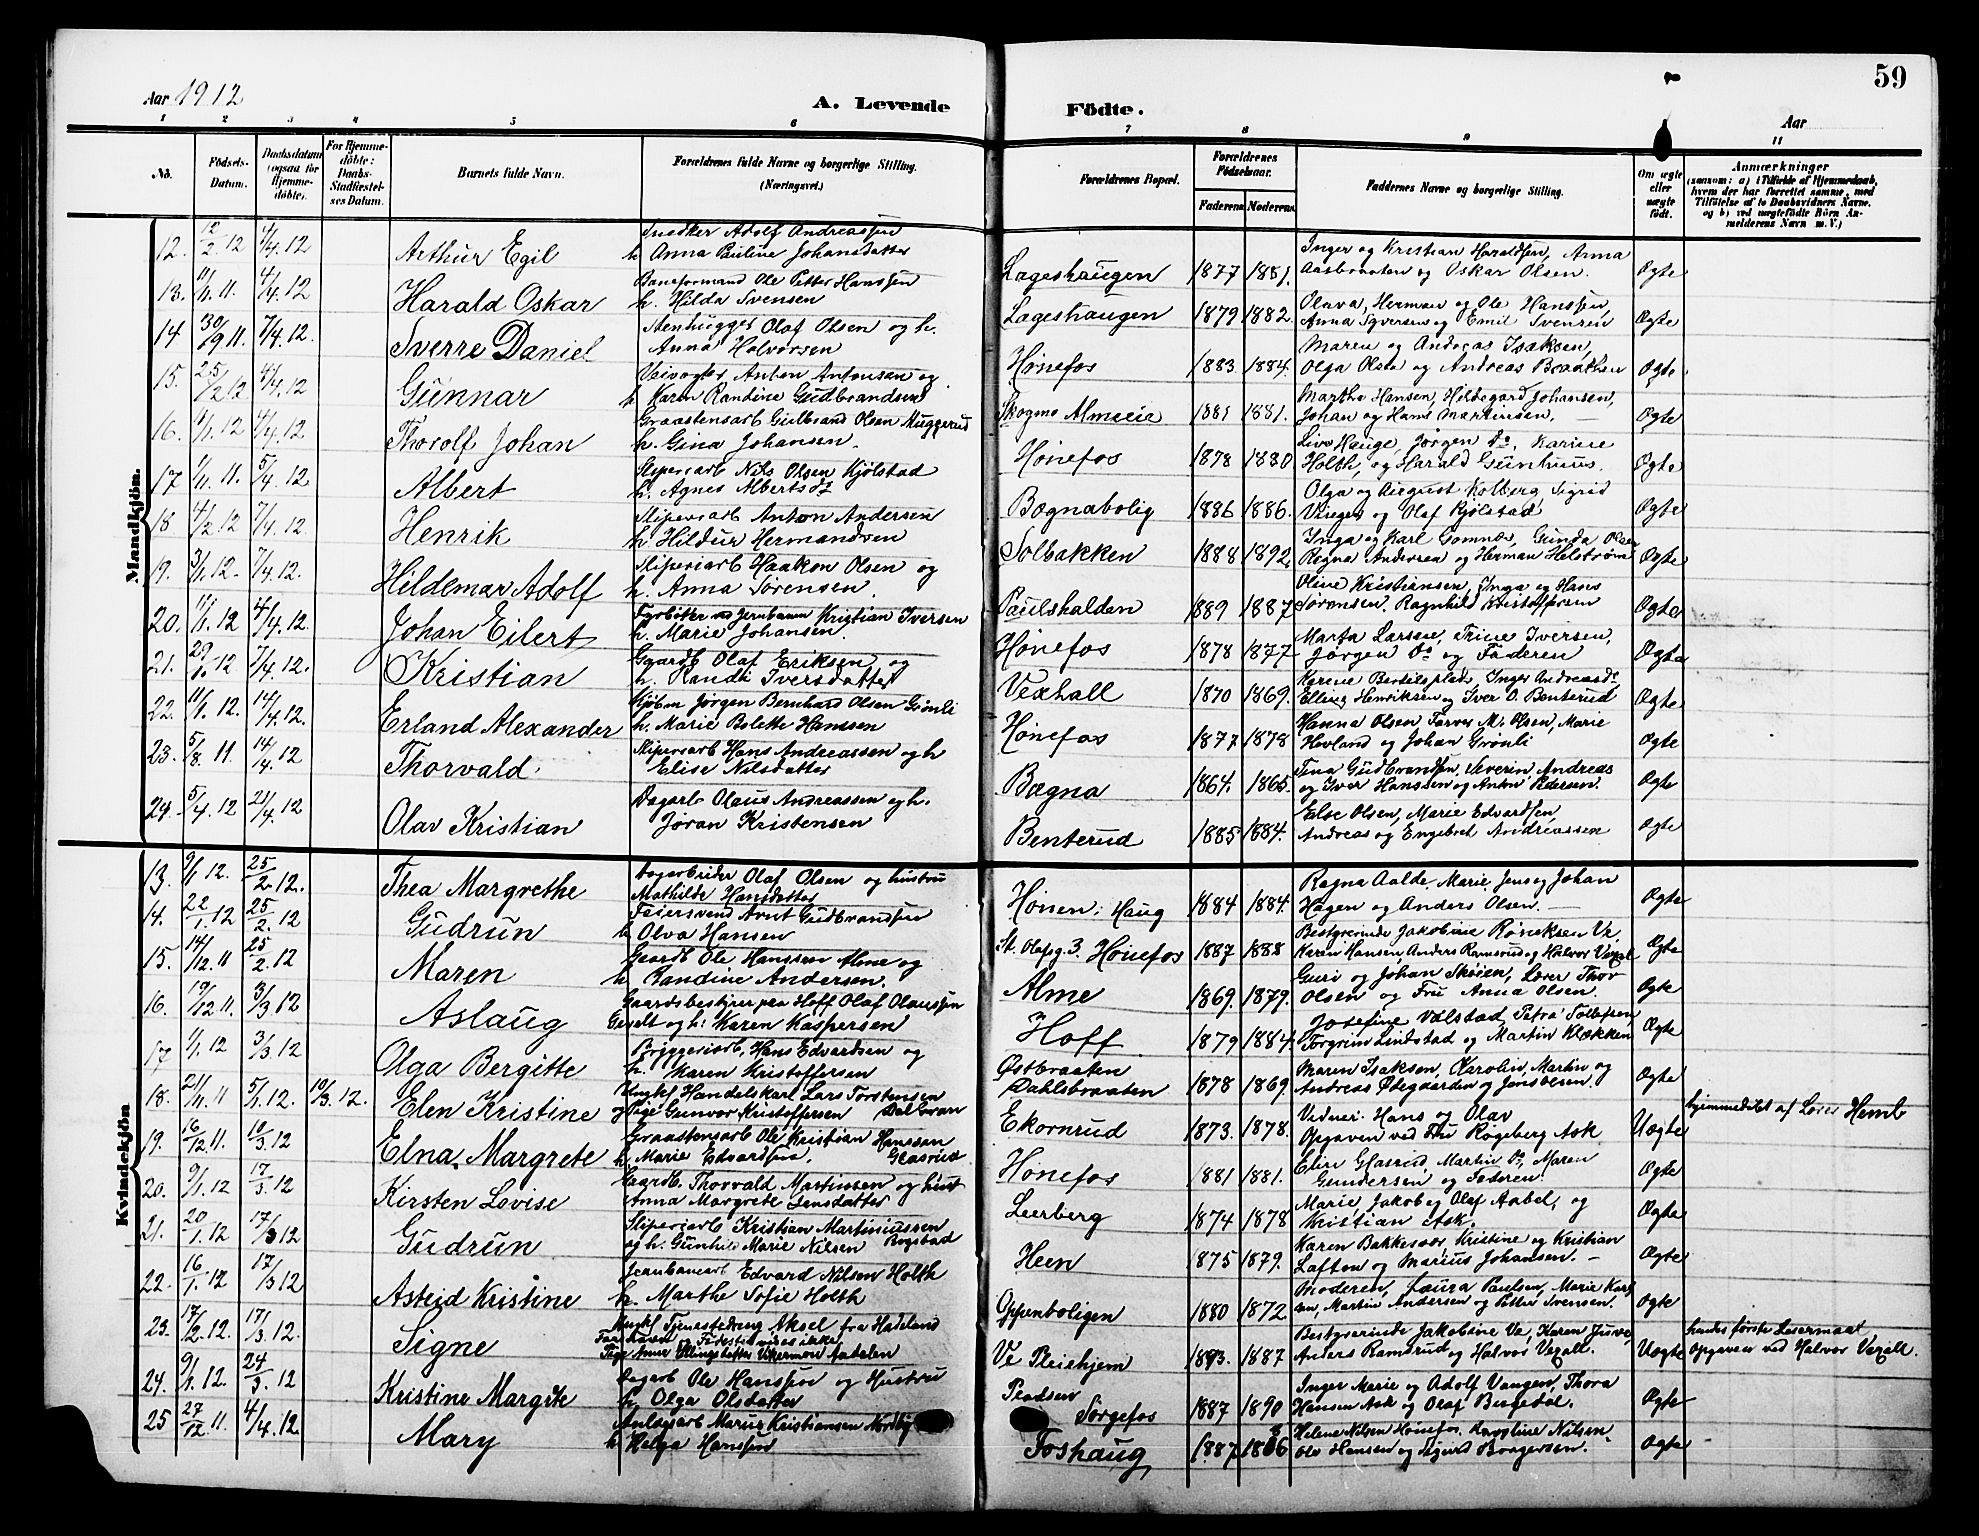 59
Aar 1912
A. Levende Födte.
Aar
1 2 3 4 5 6 7 8 9 11
No.
Födsels-Datum.
Daabsdatum (ogsaa for Hjemmedöbte).
For Hjemmedöbte: Daabs-Stadfæstelses Datum.
Barnets fulde Navn.
Forældrenes fulde Navne og borgerlige Stilling. (Næringsvei.)
Forældrenes Bopæl.
Forældrenes Födselsaar. Faderens Moderens
Faddernes Navne og borgerlige Stilling.
Om ægte eller uægte født.
Anmærkninger
(saasom: a) i Tilfælde af Hjemmedaab, hvem der har forrettet samme, med Tilföielse af to Daabsvidners Navne, og b) ved uægtefödte Börn Anmelderens Navn m. V.)
Mandkjön.
12. 12/2 12 4/4 12 Arthur Egil
Snedker Adolf Andreassen
h. Anna Pauline Johansdatter
Lageshaugen 1877 1881.
Inger og Kristian Haraldsen, Anna
Aasbraaten og Oskar Olsen. Ægte
13. 11/11 11. 4/4 12 Harald Oskar
Baneformand Ole Petter Hanssen
h. Hilda Svensen
Lageshaugen 1879 1882.
Olava, Herman og Ole Hanssen,
Anna Syversen og Emil Svensen Ægte
14 30/9 11. 7/4 12. Sverre Daniel
Stenhugger Olaf Olsen og h.
Anna Halvorsen
Hønefos 1883 1884.
Maren og Andreas Isaksen,
Olga Olsen og Andreas Braathen Ægte
15. 25/2 12 4/4 12 Gunnar
Veivogter Anton Antonsen og
h. Karen Randine Gudbrandsen
Skogmo Almeeia 1881 1881.
Marthe Hansen, Hildegard Johansen,
Johan og Hans Martinsen. Ægte
16. 12 4/4 12 Thorolf Johan
Graastensarb Gulbrand Olsen Muggerud
h. Gina Johansen.
Hønefos 1878 1880
Live Hauge, Jørgen Do, Karine
Holth, og Harald Gunhuus. Ægte
17 11. 5/4 12 Albert
Sliperiarb Nils Olsen Kjølstad
h. Agnes Albertsdt
Bægnabolig 1886 1886.
Olga og August Kolberg, Sigrid
Vinger og Olaf Kjølstad Ægte
18 4/2 12 7/4 12 Henrik
Sliperiarb Anton Andersen
h. Hildur Hermandsen
Solbakken 1888 1892
Inga og Karl Gomnæs, Gunda Olsen
Ragna Andersen og Herman Helstrøm Ægte
19. 3/1 12. 7/4 12. Hildemar Adolf
Sliperiarb Haakon Olsen og
h. Anna Sørensen.
Paulshalden 1889 1887
Oline Kristiansen, Inga og Hans
Sørensen. Ragnhild Kristoffersen Ægte
20. 17/1 12 4/4 12. Johan Eilert
Fyrbøter ved Jernbanen Kristian Iversen
h. Marie Johansen.
Hønefos 1878 1877
Marta Larsen, Trine Iversen,
Jørgen Do og Faderen Ægte
21. 12 7/4 12. Kristian
Gaardb Olaf Eriksen og
h. Randi Iversdatter
Vexhall 1870 1869.
Karene Berdelsplads, Inger Andreasdt
Elling Henriksen og Iver O. Benterud Ægte
22. 11/1 12. 14/4 12. Erland Alexander
Kjøbm Jørgen Bernhard Olsen Grønli
h. Marie Bolette Hanssen
Hønefos 1877 1878
Hanna Olsen, Farver M. Olsen, Marie
Hovland og Johan Grønli Ægte
23. 5/8 11 14/4 12 Thorvald
Sliperiarb Hans Andreassen og h
Elise Nilsdatter
Bægna 1864. 1865
Tina Gudbrandsen, Severin, Andreas
og Iver Hanssen og Anton Pedersen. Ægte
24. 5/4 12 21/4 12 Olav Kristian
Dagarb Olaus Andreassen og h.
Jøran Kristensen
Benterud 1885 1884.
Eloe Olsen, Marie Edvardsen,
Andreas og Engebret Andreassen Ægte
Kvindekjön
13. 9/1 12. 25/2 12. Thea Margrethe
Dagarbeider Olaf Olsen og hustru
Mathilde Hansdatter
Hønen i Haug 1884 1884.
Ragna Aalde, Marie, Jens og Johan
Hagen og Anders Olsen. Ægte
14. 22/1 12 25/2 12 Gudrun
Feiersvend Arnt Gudbrandsen
h. Olva Hansen
St. Olafsg. 3. Hønefos 1887 1888
Bestyrerinde Jakobine Ve,
Karen Hansen, Anders Ramsrud og Halvor Vexal Ægte
15. 14/12 11 25/2 12 Maren
Gaardb Ole Hanssen Alme og
h Randine Andersen.
Alme 1869. 1879.
Guri og Johan Skøien, Lærer Thor
Olsen og Fru Anna Olsen. Ægte
16. 19/12 11. 3/3 12 Aslaug
Gaardsbestyrer paa Hoff Olaf Olaussen
Gevelt og h: Karen Kaspersen
Hoff 1879 1884.
Josefine Valstad, Petra Tollefsen
Torgrim Lindstad og Martin Klækken Ægte
17 1/1 12 3/3 12 Olga Bergitte
Bryggeriarb, Hans Edvardsen og
h. Karen Kristoffersen
Østbraaten Dahlsbraaten 1878 1869.
Maren Isaksen, Karolin, Martin og
Andreas Ødegaarden og Jonsveren. Ægte
18. 21/11 11 5/1 12. 10/3 12. Elen Kristine
Ungkf Handelskarl Lars Torstensen
og Pige Gunvor Kristoffersen
Ekornrud 1873. 1878.
Vidner: Hans og Olav
Opgaven ved Fru Røgeberg Ask Uægte
hjemmedøbt af Lærer Hemb
19. 16/12 11. 10/3 12 Elna Margrete
Graastensarb Ole Kristian Hanssen Glasrud
h. Marie Edvardsen.
Hønefos 1881 1881.
Elin Glasrud, Martin Do, Maren
Gundersen og Faderen. Ægte
20. 9/1 12 17/3 12 Kirsten Lovise
Gaardb. Thorvald Martinsen og hust
Anna Margrete Jensdatter
Leerberg 1874 1878
Marie, Jakob og Olaf Aabel, og
Kristian Ask. Ægte
21. 20/1 12 17/3 12 Gudrun
Sliperiarb Kristian Martiniussen
og h. Gunhild Marie Nilsen Bugstad
Heen 1875 1879.
Karen Bakkesvær, Kristine og Kristian
Lafton og Marius Johansen. Ægte
22. 16/1 12 17/3 12 Astrid Kristine
Jernbanearb Edvard Nilsen Holth
h. Marthe Sofie Holth
Oppenboligen 1880 1872.
Moderen, Laura Paulsen, Marie Karlsen,
Martin Andersen og Petter Svensen. Ægte
23. 17/2 12. 17/3 12. Signe
Ungkf Tjenestedreng Aksel fra Hadeland
Farsnavn og Fødested vides ikke
Pige Anne Aadalen
Ve Pleiehjem 1893. 1887
Bestyrerinde Jakobine Ve, Karen Juve,
Anders Ramsrud og Halvor Vexall. Uægte
hendes første Leiermaal
Opgaven ved Halvor Vexall.
24. 9/1 12. 24/3 12 Kristine Margite
Dagarb Ole Hanssen og Hustru
h. Olga Olsdatter
Pladsen Sørgefos 1887 1890
Inger Marie og Adolf Vangen, Thora
Hansen Ask og Olaf Ægte
25 27/12 11. 4/4 12. Mary
Anlægsarb Marius Kristiansen Nordby
h Helga Hanssen
Foshaug 1887 1886
Helene Nilsen Hønefos, Karoline Nilsen,
Ole Hansen og Sigurd Borgersen. Ægte